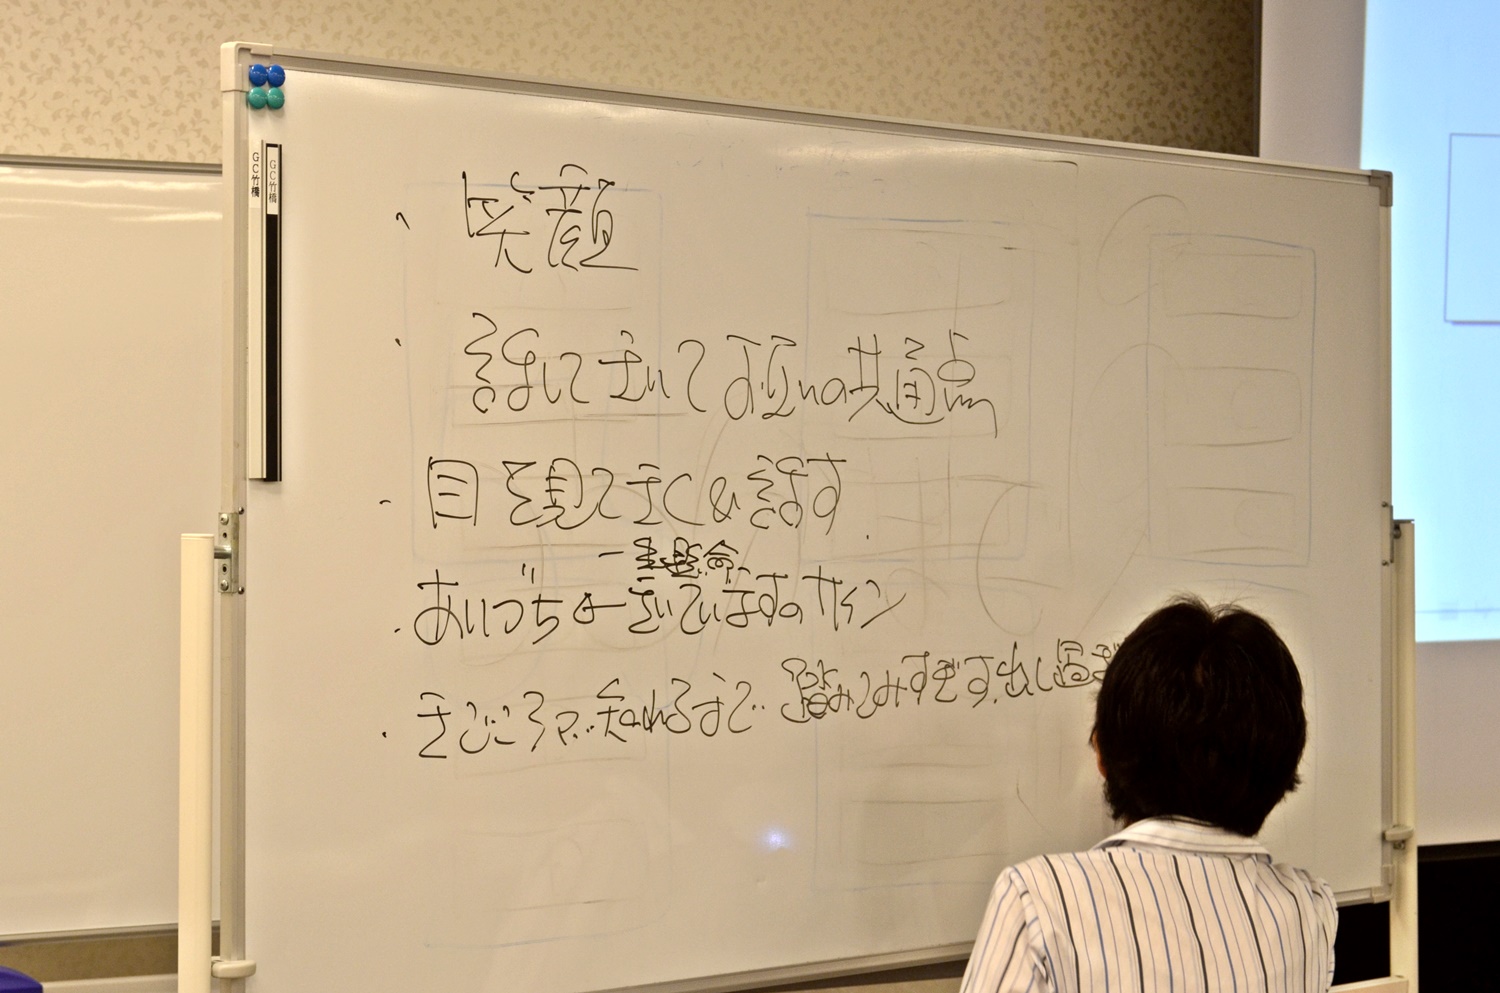 GC竹橋
GC竹橋
・ 笑顔
・ 話して きいて お互いの共通点
・ 目を観てきく&話す
一生懸命
・ あいづち←きいていますのサイン
・ きどころが知れるまで 踏みこみすぎず、出し過ぎ